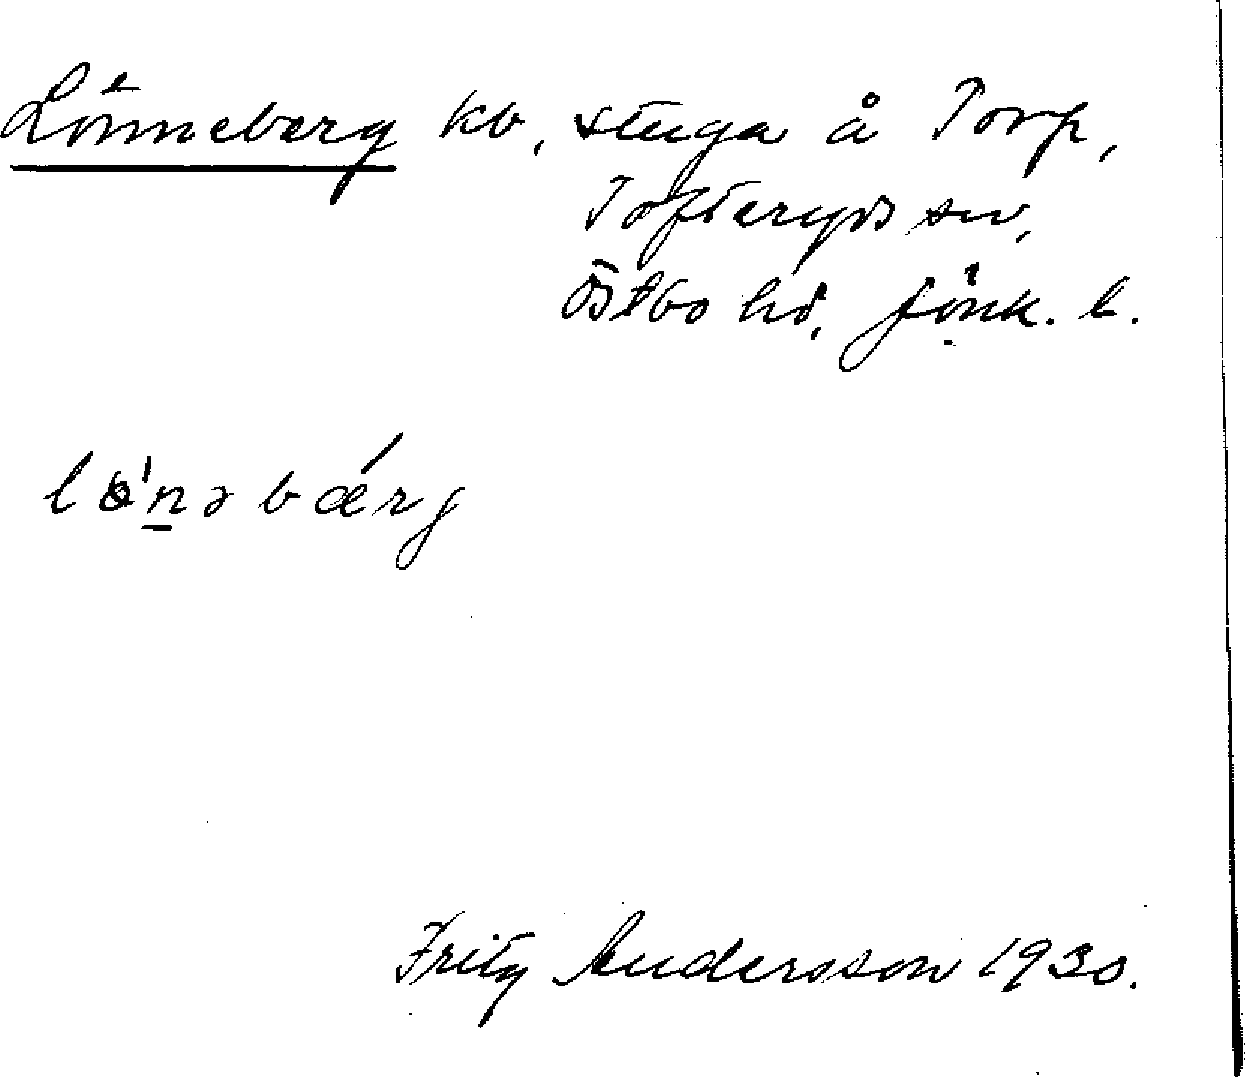 Lönneberg kb, stuga å Torp,
Tofteryds sn,
Östbo hd, Jönk. l.
lönəbærg
Fritz Andersson 1930.